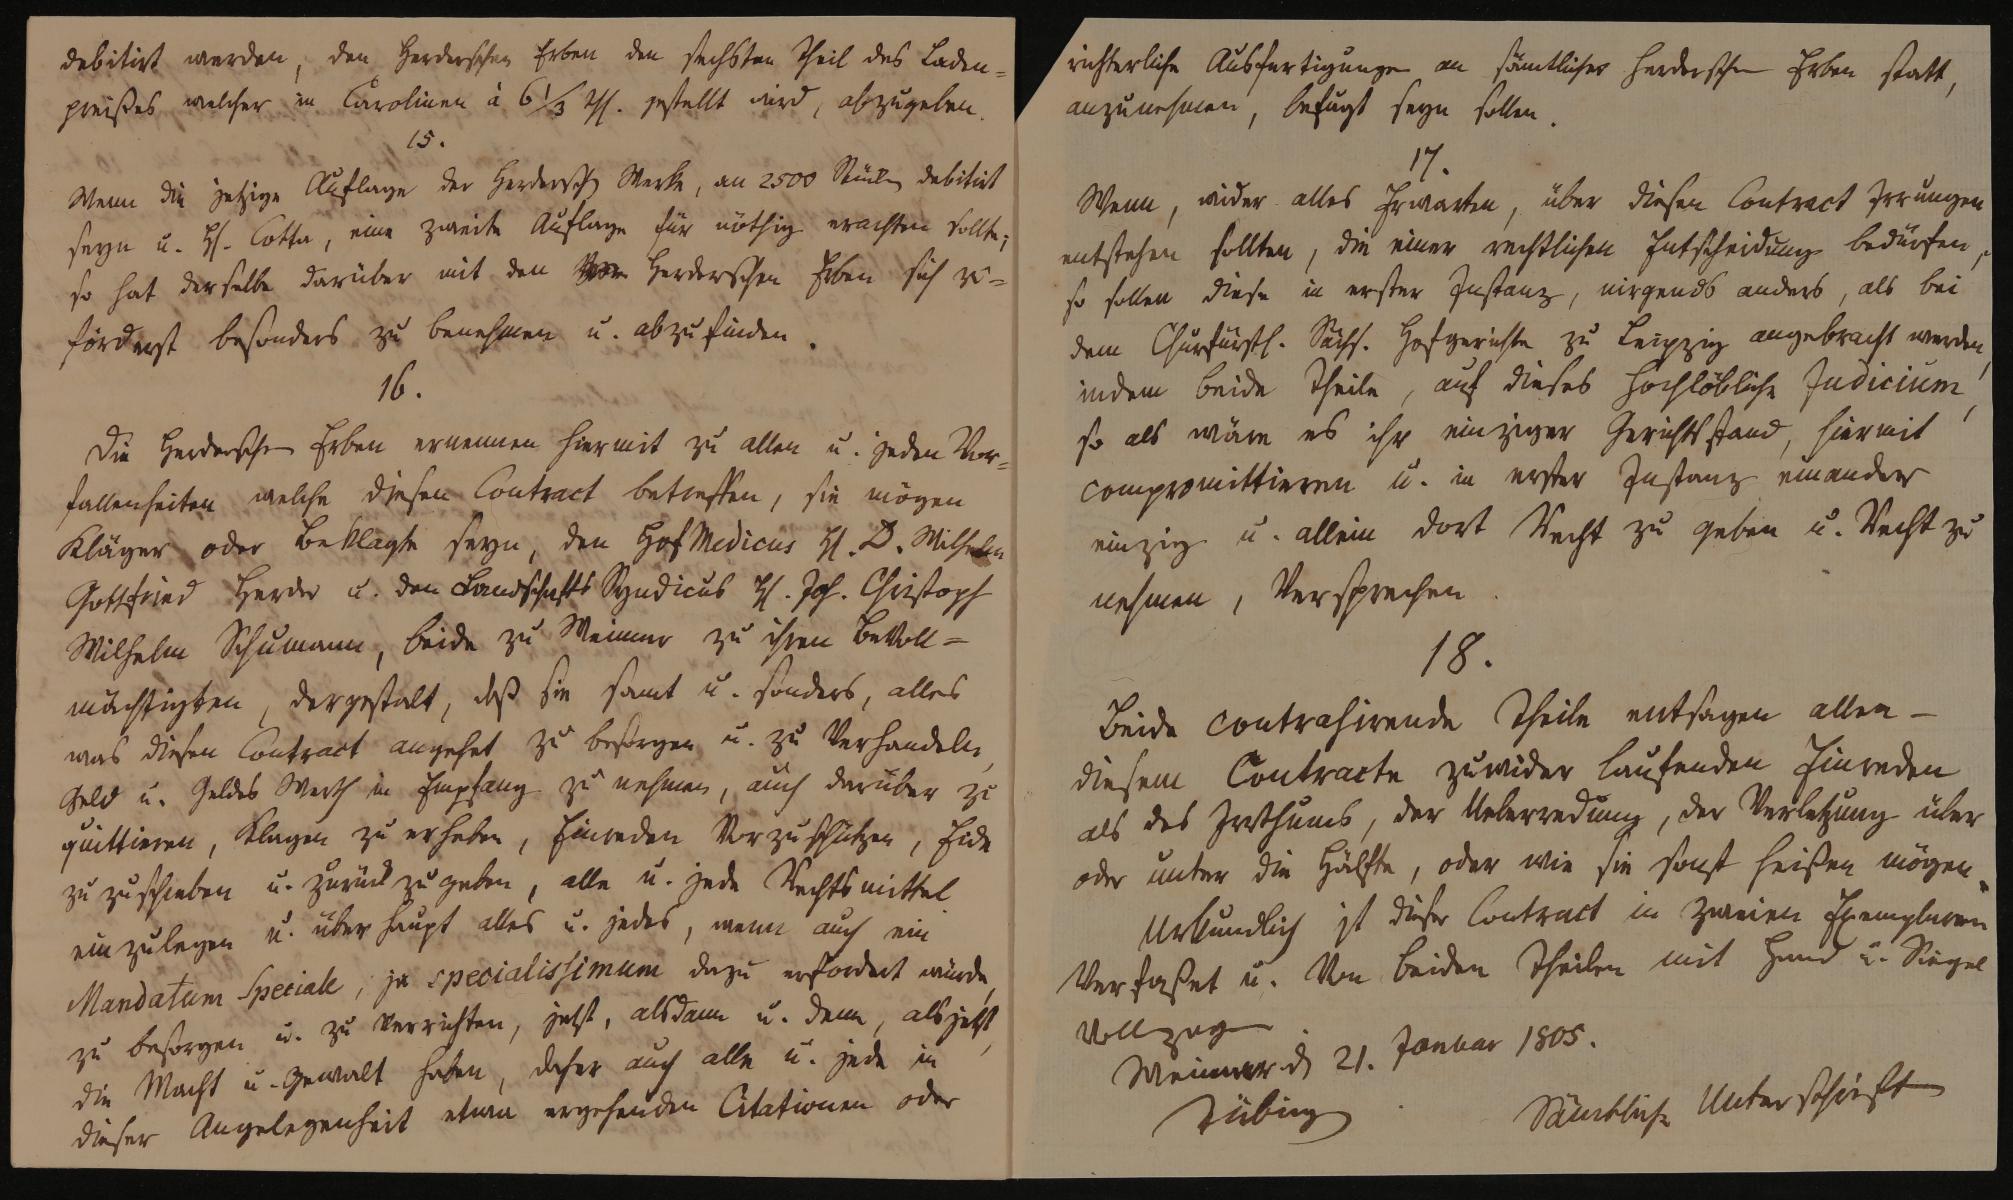 debitirt werden, den Herderschen Erben den sechsten Theil des Laden=
preißes welcher in Carolinen à 6 1/3 rh. gestellt wird, abzugeben.
15.
Wenn die jetzige Auflage der Herdersch Werke, an 2500 Stücken debitirt
seyn u. H. Cotta, eine zweite Auflage für nöthig erachten sollte;
so hat derselbe darüber mit den Herderschen Erben sich zu=
förderst besonders zu benehmen u. abzufinden.
16.
Die Herderschen Erben ernennen hiermit zu allen u. jeden Vor=
fallenheiten welche diesen Contract betreffen, sie mögen
Kläger oder Beklagte seyn, den HofMedicus H. D. Wilhelm
Gottfried Herder u. den Landschafts Syndicus H. Joh. Christoph
Wilhelm Schumann, beide zu Weimar zu ihren Bevoll=
mächtigten, dergestalt, daß sie samt u. sonders, alles
was diesen Contract angehet zu besorgen u. zu Verhandeln,
Geld u. Geldes Werth in Empfang zu nehmen, auch darüber zu
quittieren, Klagen zu erheben, Einreden Vorzuschützen, Eide
zuzuschieben u. zurück zu geben, alle u. jede Rechtsmittel
einzulegen u. überhaupt alles u. jedes, wenn auch ein
Mandatum Speciale, ja specialissimum dazu erfordert würde,
zu besorgen u. zu verrichten, jetzt, alsdann u. denn, als jetzt,
die Macht u. Gewalt haben, daher auch alle u. jede in
dieser Angelegenheit etwa ergehenden Citationen oder
richterliche Ausfertigungen an sämtlicher Herderschen Erben statt,
anzunehmen, befugt seyn sollen.
17.
Wenn, wider alles Erwarten, über diesen Contract Irrungen
entstehen sollten, die einer rechtlichen Entscheidung bedürfen,
so sollen diese in erster Instanz, nirgends anders, als bei
dem Churfürstl. Sächs. Hofgerichte zu Leipzig angebracht werden,
indem beide Theile, auf dieses hochlöbliche Judicium,
so als wäre es ihr einziger Gerichtsstand, hiermit
compromittieren u. in erster Instanz einander
einzig u. allein dort Recht zu geben u. Recht zu
nehmen, Versprechen.
18.
Beide contrahirende Theile entsagen allen –
diesem Contracte zuwider laufenden Einreden
als des Irrthums, der Ueberredung, der Verletzung über
oder unter die Hälfte, oder wie sie sonst heißen mögen.
Urkundlich ist dieser Contract in zweien Exemplaren
Verfaßet u. Von beiden Theilen mit Hand u. Siegel
Vollzogen.
Weimar d 21. Januar 1805.
Tübingen
Sämtliche Unterschriften